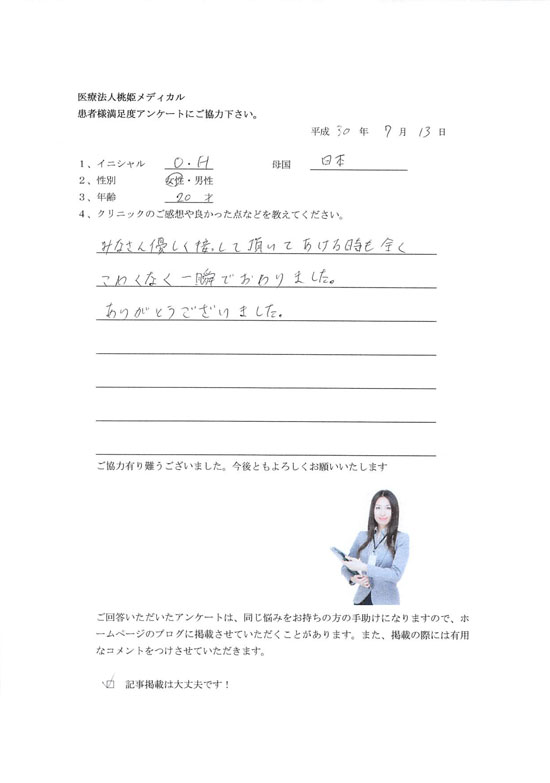 医療法人桃姫メディカル
患者様満足度アンケートにご協力下さい。
平成 30 年 7 月 13 日
1、イニシャル O・H 母国 日本
2、性別 女性・男性
3、年齢 20 才
4、クリニックのご感想や良かった点などを教えてください。
みなさん優しく接して頂いてあける時も全く
こわくなく一瞬でおわりました。
ありがとうございました。
ご協力有り難うございました。今後ともよろしくお願いいたします
ご回答いただいたアンケートは、同じ悩みをお持ちの方の手助けになりますので、ホ
ームページのブログに掲載させていただくことがあります。また、掲載の際には有用
なコメントをつけさせていただきます。
☑ 記事掲載は大丈夫です！